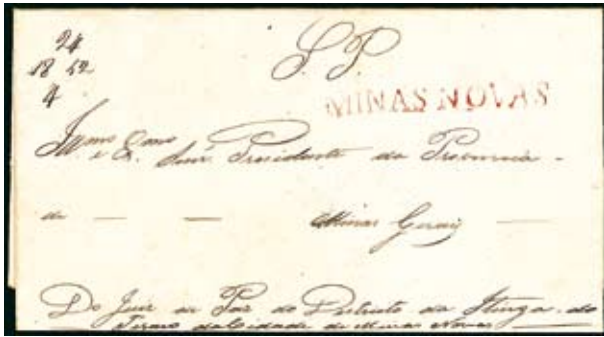 24
18 52
4
S. P.
MINAS NOVAS
Illmo e Exmo Snr. Presidente da Provincia -
de — — Minas Geraes —
Do Juiz de Paz do Districto da Itinga do
Termo da Cidade de Minas Novas —